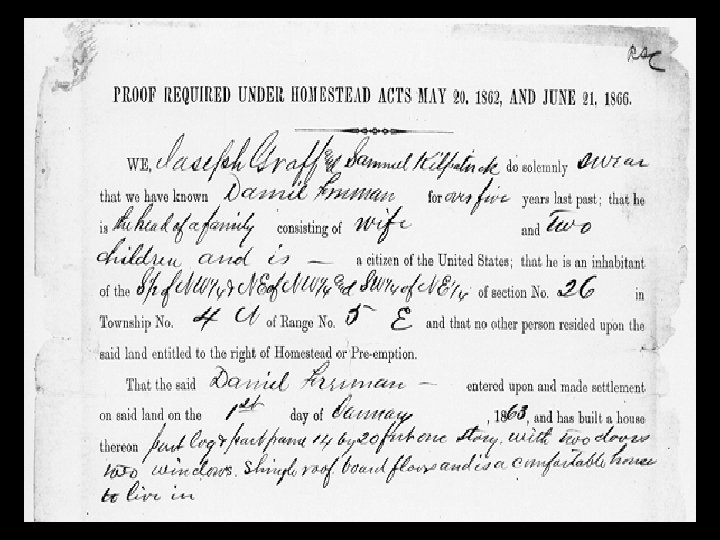 PROOF REQUIRED UNDER HOMESTEAD ACTS MAY 20, 1862, AND JUNE 21, 1866.
WE, Joseph Graff and Samuel Kilpatrick do solemnly swear
that we have known Daniel Freeman for over five years last past; that he
is the head of a family consisting of wife and two
children and is — a citizen of the United States; that he is an inhabitant
of the S½ of NW¼ & NE of NW¼ and SW¼ of NE¼ of section No. 26 in
Township No. 4 N of Range No. 5 E and that no other person resided upon the
said land entitled to the right of Homestead or Pre-emption.
That the said Daniel Freeman — entered upon and made settlement
on said land on the 1st day of January, 1863, and has built a house
thereon part log & part frame 14 by 20 feet one story, with two doors
two windows, shingle roof board floors and is a comfortable house
to live in